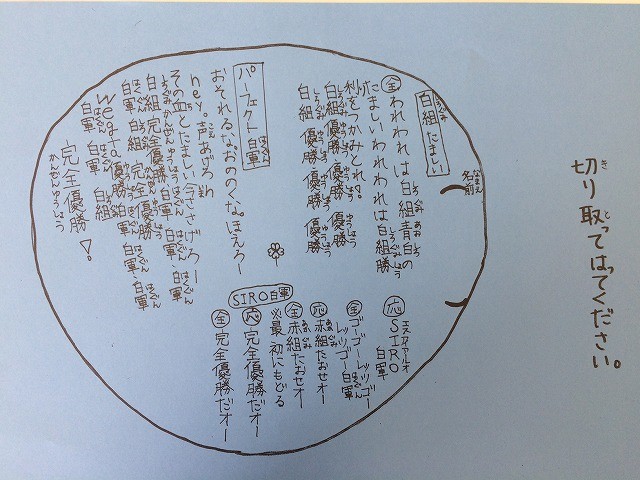 切り取ってはってください。
名前
白組たましい
全 われわれは白組青白の
たましいわれわれは白組勝
利をつかみとれ!。
白組 優勝 優勝 優勝
白組 優勝 優勝 優勝
パーフェクト白軍
おそれるな。おののくな。ほえろー
hey。声あげろ
その血とたましい今ささげろー
白組 完全優勝 白軍 白軍
白軍 白組 完全優勝 白軍
優勝 白軍 白軍 白軍
白軍 白軍 白組
完全優勝!。
応 SIRO
白軍
全 ゴーゴーレッツゴー
レッツゴー白軍
応 赤組たおせオー
全 赤組たおせオー
※最初にもどる
SIRO白軍
応 完全優勝だオー
全 完全優勝だオー